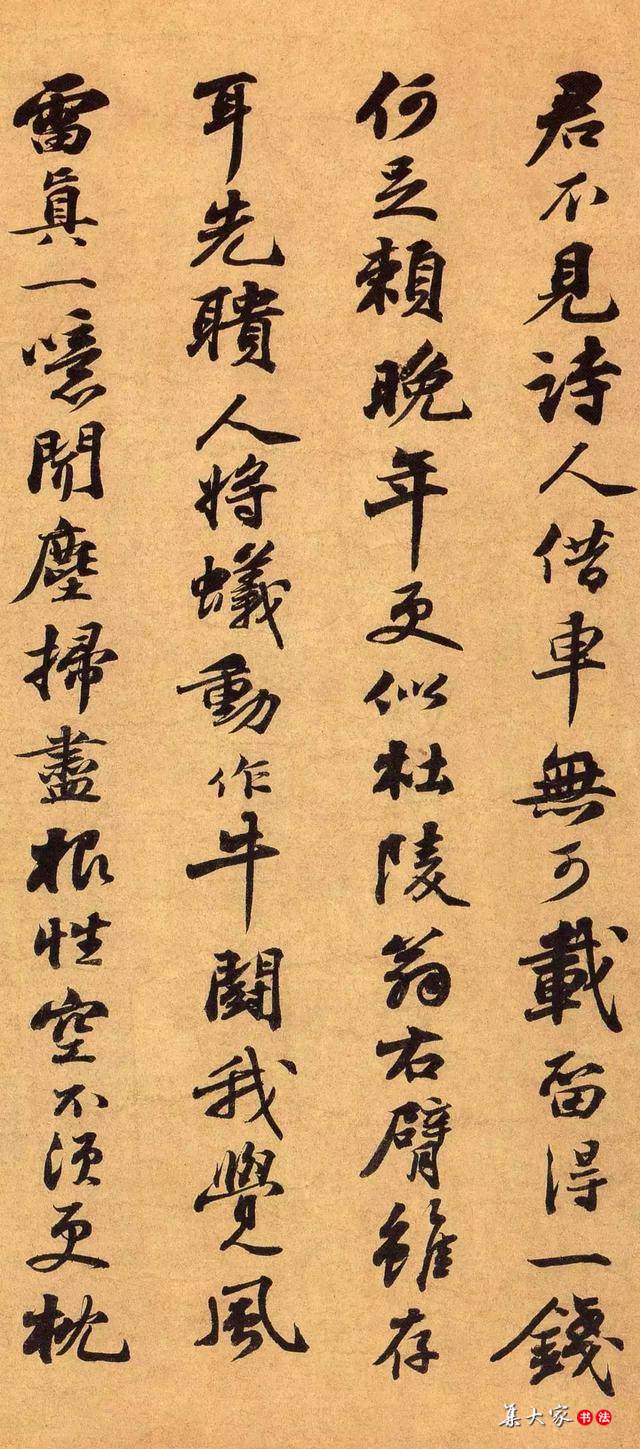 君不見詩人借車無可載留得一錢
何足賴晚年更似杜陵翁右臂雖存
耳先聵人將蟻動作牛鬪我覺風
雷真一噫聞塵掃盡根性空不須更枕
集大家書法